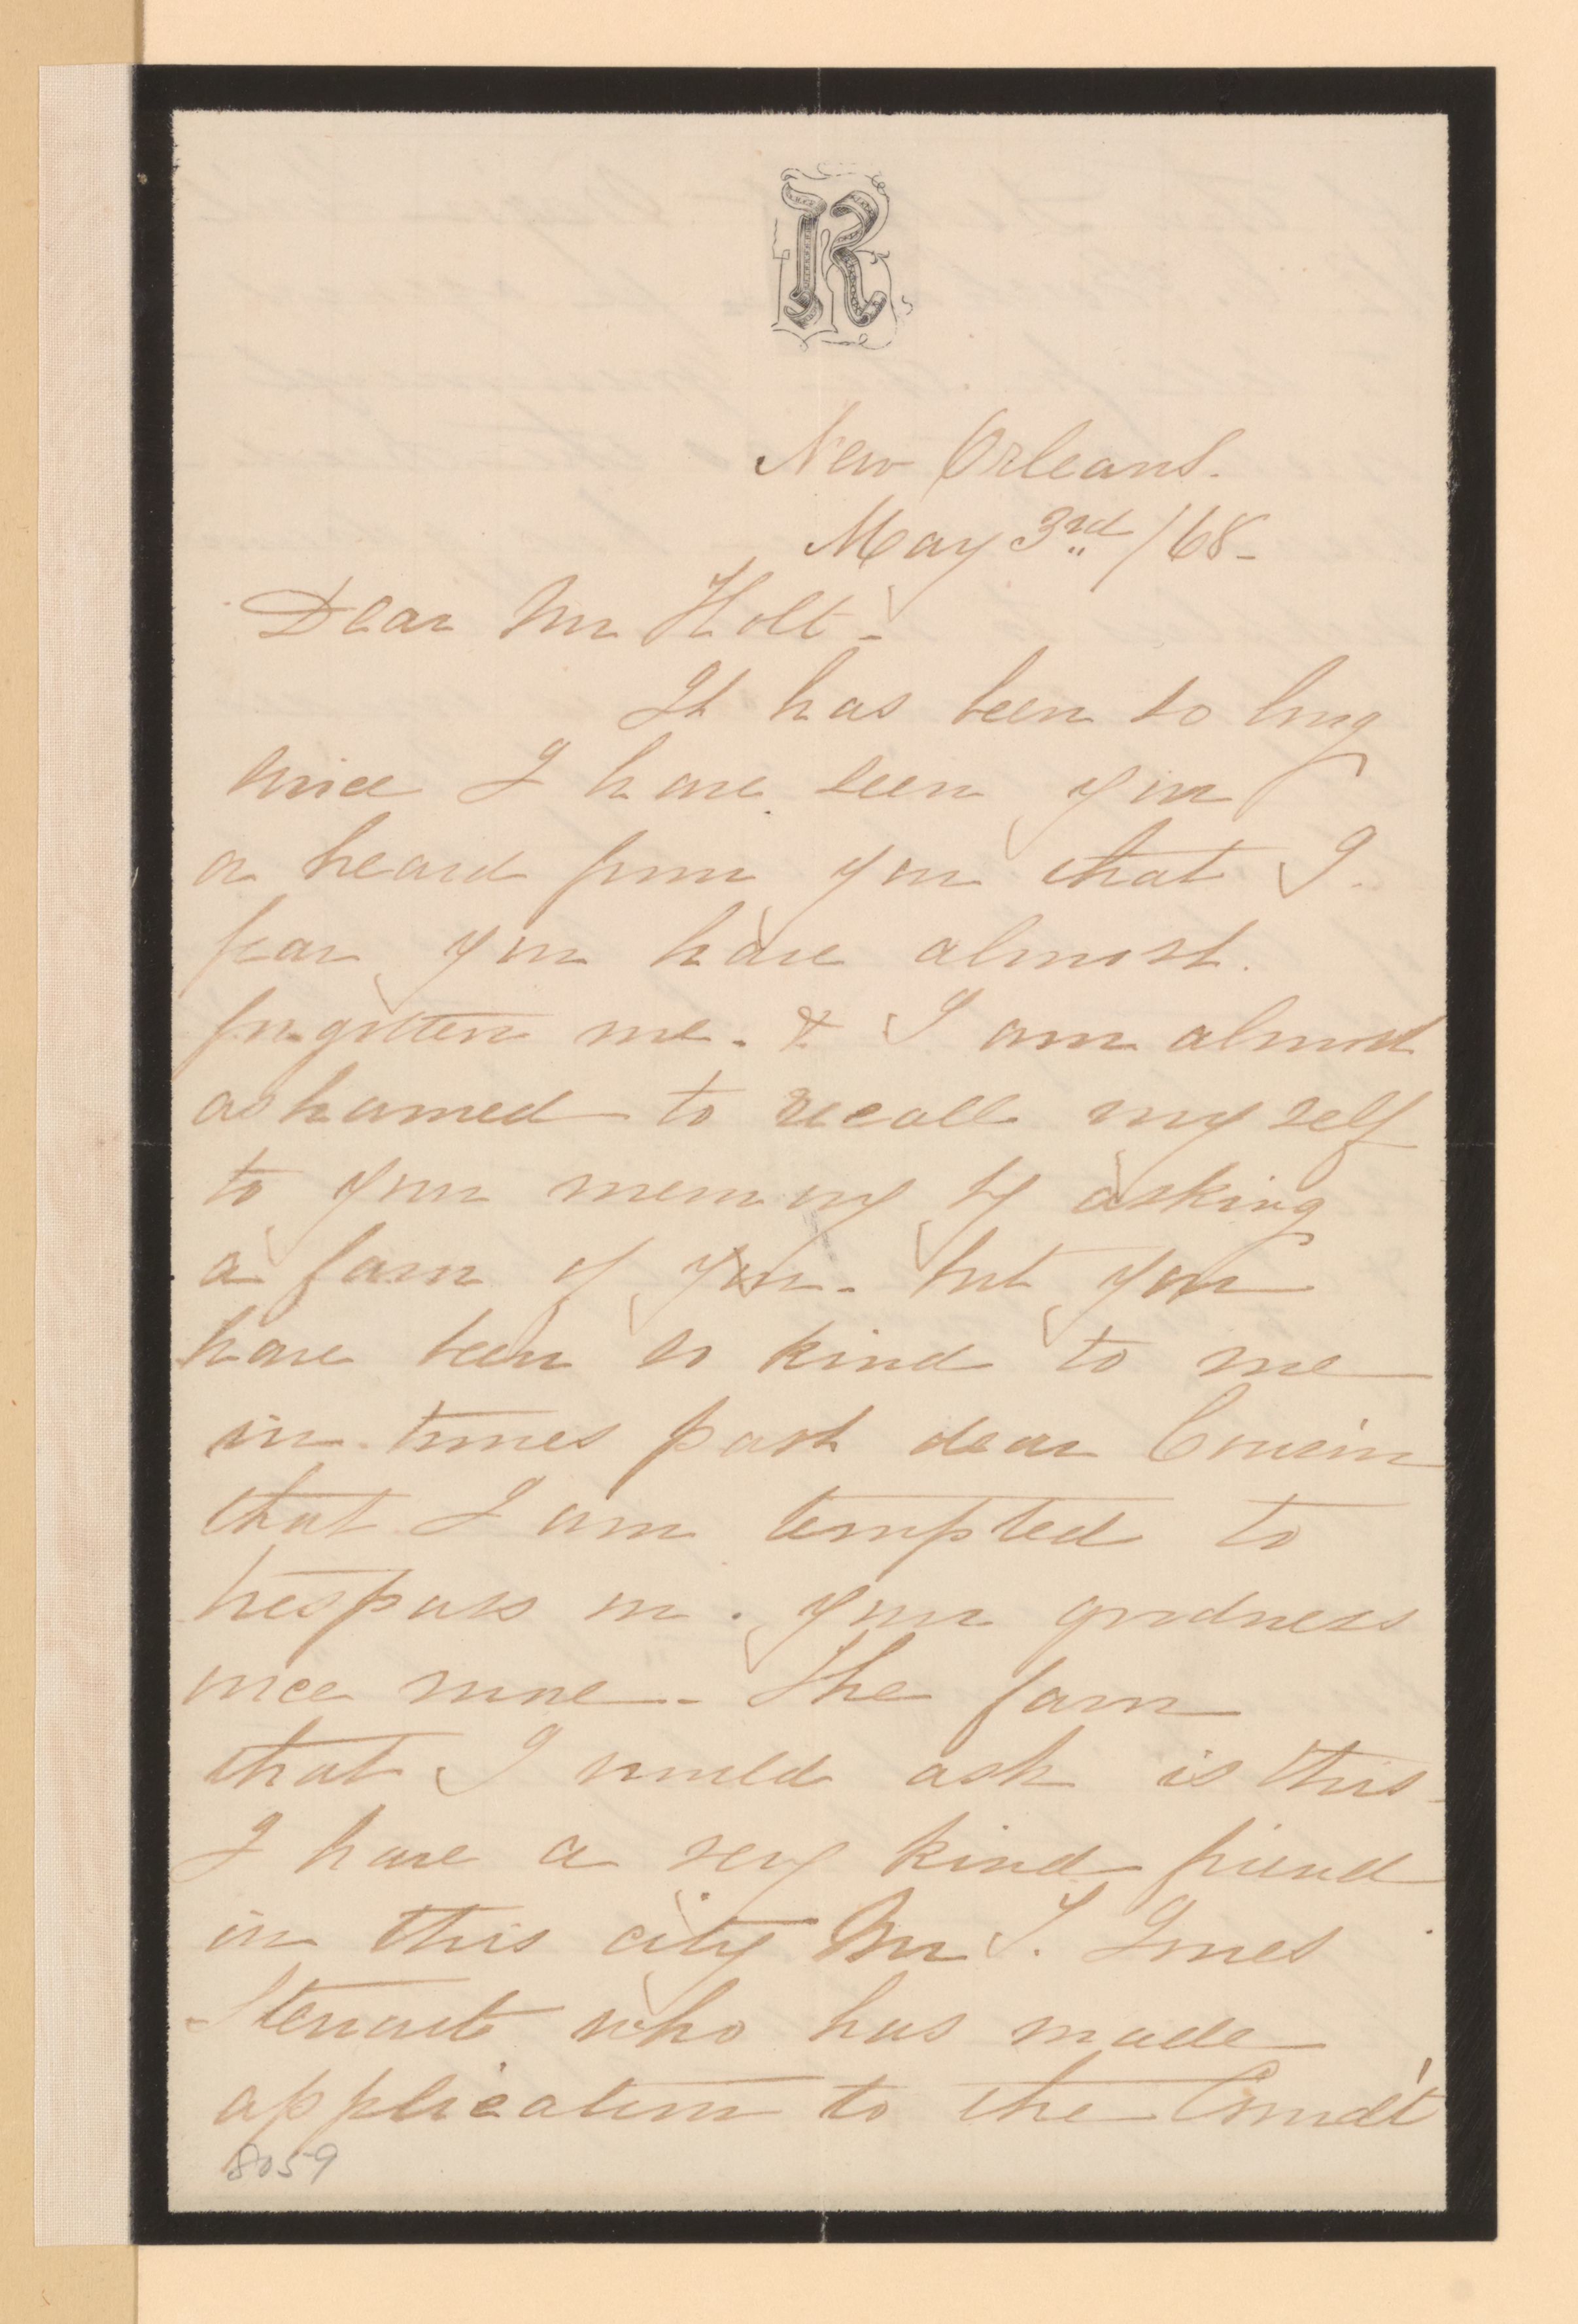 R
New Orleans.
May 3rd /68-
Dear Mr Holt-
It has been so long
since I have seen you
or heard from you that I
fear you have almost
forgotten me. & I am almost
ashamed to recall myself
to your memory by asking
a favor of you. but you
have been so kind to me
in times past dear Cousin
that I am tempted to
trespass on your goodness
once more- The favor
that I would ask is this-
I have a very kind friend
in this city Mr Innes
Stewart who has made
application to the Comdt
8059